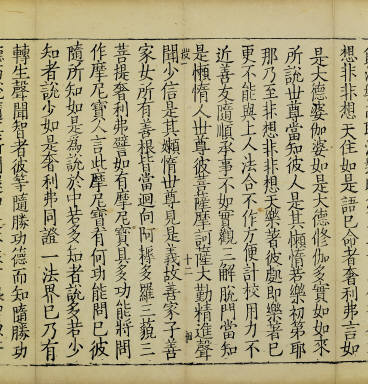 想非非想天住如是語已命者奢利弗言如
是大德婆伽婆如是大德修伽多實如如來
所說世尊當知彼人是其懶惰若樂初第耶
那乃至非想非非想天樂著彼處即樂著已
更不能與上人法合不作方便計校用力不
近善友隨順承事不如實觀三解脫門當知
是懶惰人世尊彼菩薩摩訶薩大勤精進聲
十二
聞少信是其懶惰世尊見是義故善家子善
家女所有善根皆當迴向阿耨多羅三藐三
菩提奢利弗譬如有摩尼寶具多功能將問
作摩尼寶人言此摩尼寶有何功能問已彼
隨所知如是為說於中若多知者說多若少
知者說少如是奢利弗同證一法界已乃有
轉生聲聞智者彼等隨勝功德而知隨勝功